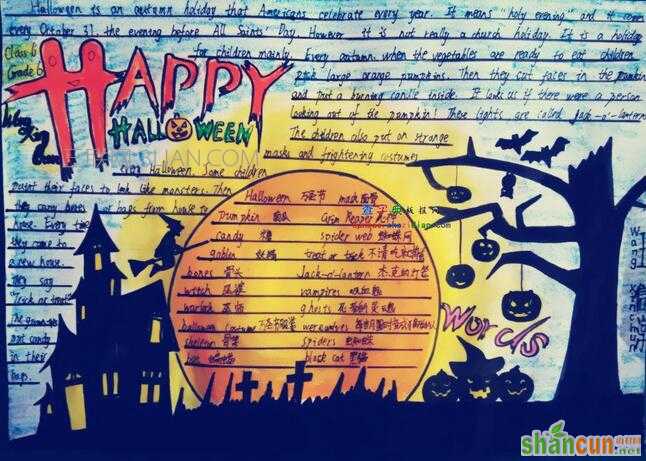 Halloween is an autumn holiday that Americans celebrate every year. It means "holy evening" and it comes
every October 31, the evening before All Saints' Day. However it is not really a church holiday. It is a holiday
for children mainly. Every autumn when the vegetables are ready to eat children
pick large orange pumpkins. Then they cut faces in the pumpkins
and put a burning candle inside. It looks as if there were a person
looking out of the pumpkin! These lights are called Jack-o'-lantern
The children also put on strange
masks and frightening costumes
every Halloween. Some children
paint their faces to look like monsters. Then
they carry boxes or bags from house to
house. Every time
they come to
a new house
they say
Trick or treat
put candy
in their
bags.
Class 6
Grade 6
HAPPY
HALLOWEEN
Halloween 万圣节 mask 面具
pumpkin 南瓜 Grim Reaper 死神
candy 糖 spider web 蜘蛛网
goblin 妖精 treat or trick 不请吃就捣蛋
bones 骨头 Jack-o'-lantern 杰克的灯笼
witch 巫婆 vampires 吸血鬼
warlock 巫师 ghosts
halloween costume 万圣节服装 werewolves
skeleton spiders 蜘蛛
bat 蝙蝠 black cat 黑猫
Words
Wang
shancun
.net